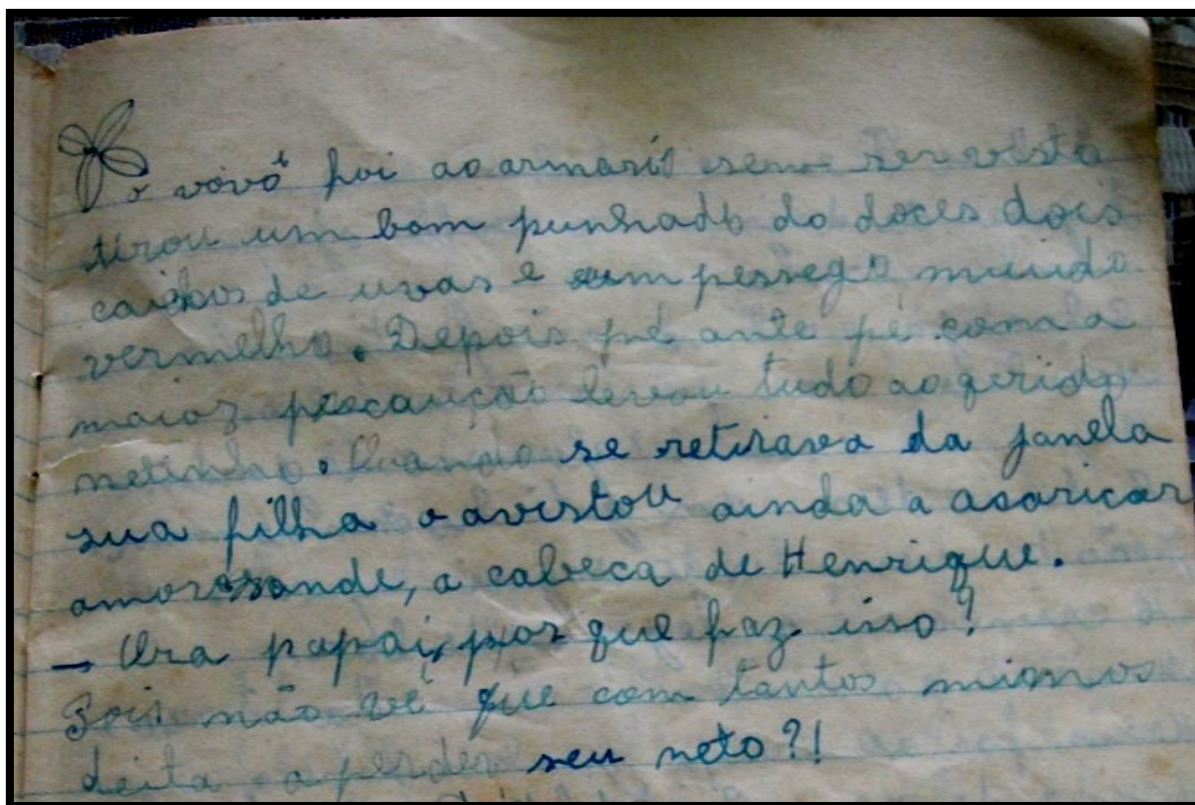 o vovô foi ao armario sem ser visto
tirou um bom punhado do doces dois
caichos de uvas e um pessego muindo
vermelho. Depois pé ante pé com a
maior precaução levou tudo ao qerido
netinho. Quando se retirava da janela
sua filha o avistou ainda a acaricar
a cabeca de Henrique.
— Ora papai, por que faz isso?
Pois não vê que com tantos mimos
deita a perder seu neto?!